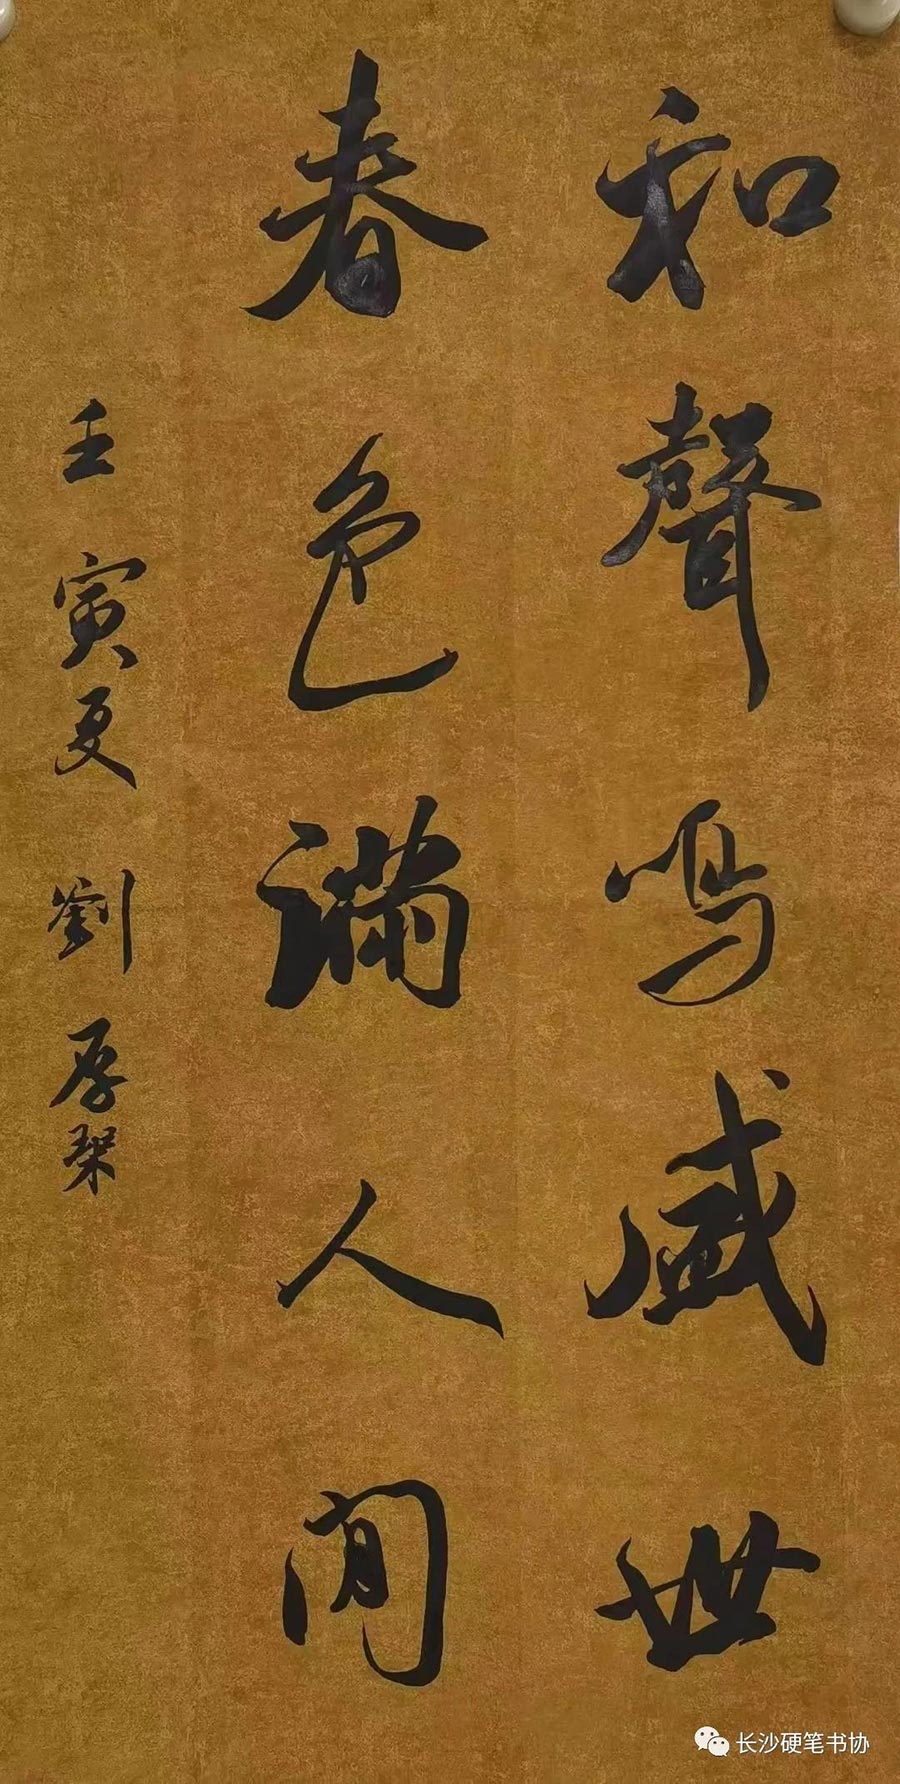 和聲鳴盛世
春色滿人間
壬寅夏 劉厚琛
长沙硬笔书协